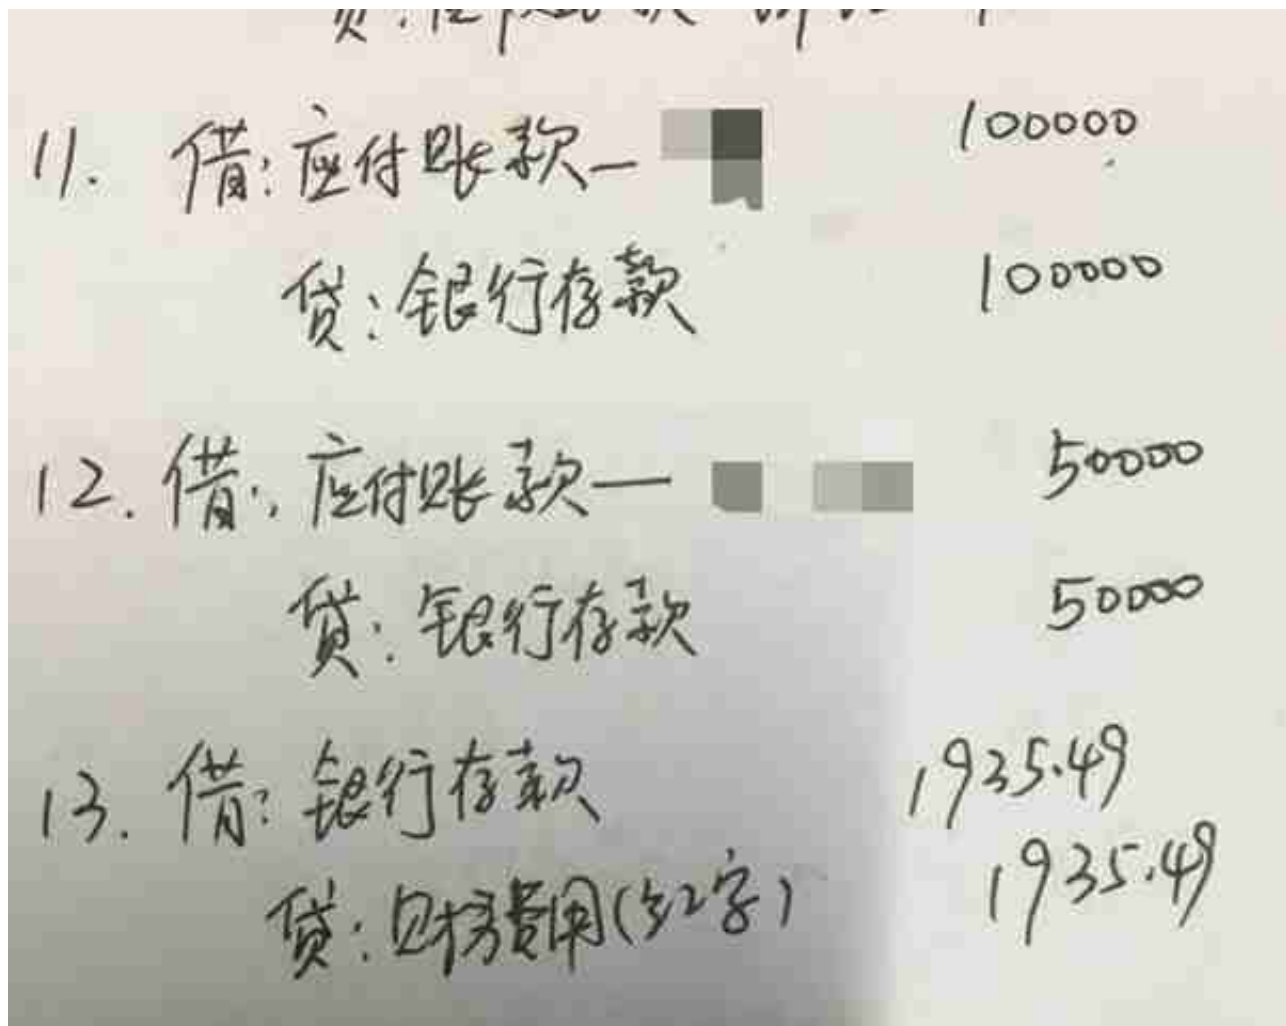 11. 借:应付账款— 100000
贷:银行存款 100000
12. 借:应付账款— 50000
贷:银行存款 50000
13. 借:银行存款 1935.49
贷:财务费用(红字) 1935.49